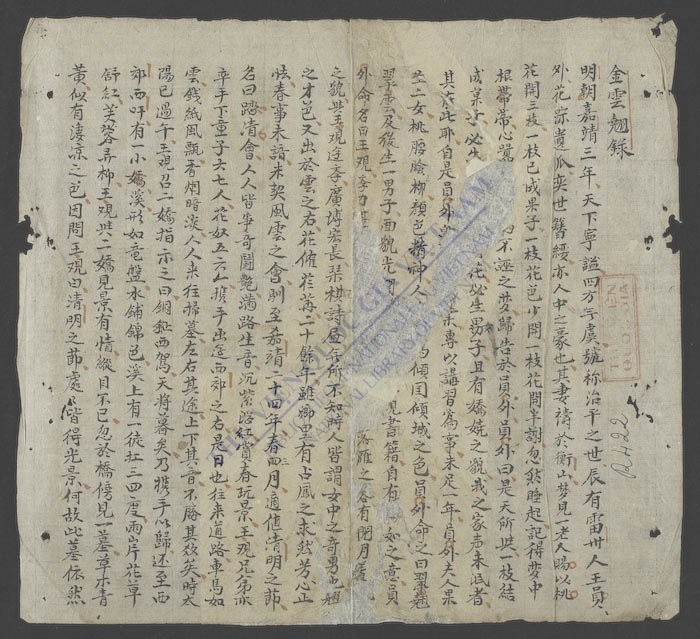 金雲翹錄
明朝嘉靖三年天下寧謐四方無虞號称治平之世辰有雷卅人王員
外花踪遺派奕世簪纓亦人中之豪也其妻禱於衡山梦見一老人賜以桃
花開三枝一枝已成果子一枝花色少開一枝花開半謝忽然睡起記得夢中
根蒂蒂心驚 不誣之梦歸告於員外員外曰是天所與一枝結
成菓子必生 花必生男子且有嬌嬈之觀哉之家声未泯者
其在此耶自是員外 業專以講習為事未足一年員外夫人果
生二女桃腮臉柳顏色精神人 的傾囯傾城之色員外命之曰翠翹
翠雲及後生一男子面貌光 見書籍自有 如之意員
外命名曰王观 落雁之容有閉月
之貌與王观 李廣博宏長琹棋詩昼無所不知時人皆謂女中之奇男也翹
之才色又出於雲之右花催花苒二十餘年雖鄉里有占鳳之求然芳心正
怯春事未諳未契風雲之會則至嘉靖二十四年春三月適值清明之節
名曰踏清會人人皆事奇鬭艶滿路生音沉紫浴紅賞春玩景王观兄弟亦
率手下童子六七人花奴五六口携手出遊西郊之右是日也往来道路車馬如
雲錢紙風飄香烟暗淡人人来往掃墓左右其途上下其音不勝其致矣時太
陽已過午王观召二嬌指示之曰 西駕天将暮矣乃携手以歸还至西
郊西吁有一小嬌溪形如竜盤水鋪錦色溪上有一徒杠三四度兩岸花草
舒紅芙蓉弄柳王观與二嬌見景有情縱目不已忽於橋傍見一墓草木青
黄似有凄凉之色因問王观曰清明之節處處皆得光景何故此墓依然
R.H22
THƯ VIỆN QUỐC GIA VIỆT NAM
NATIONAL LIBRARY OF VIETNAM